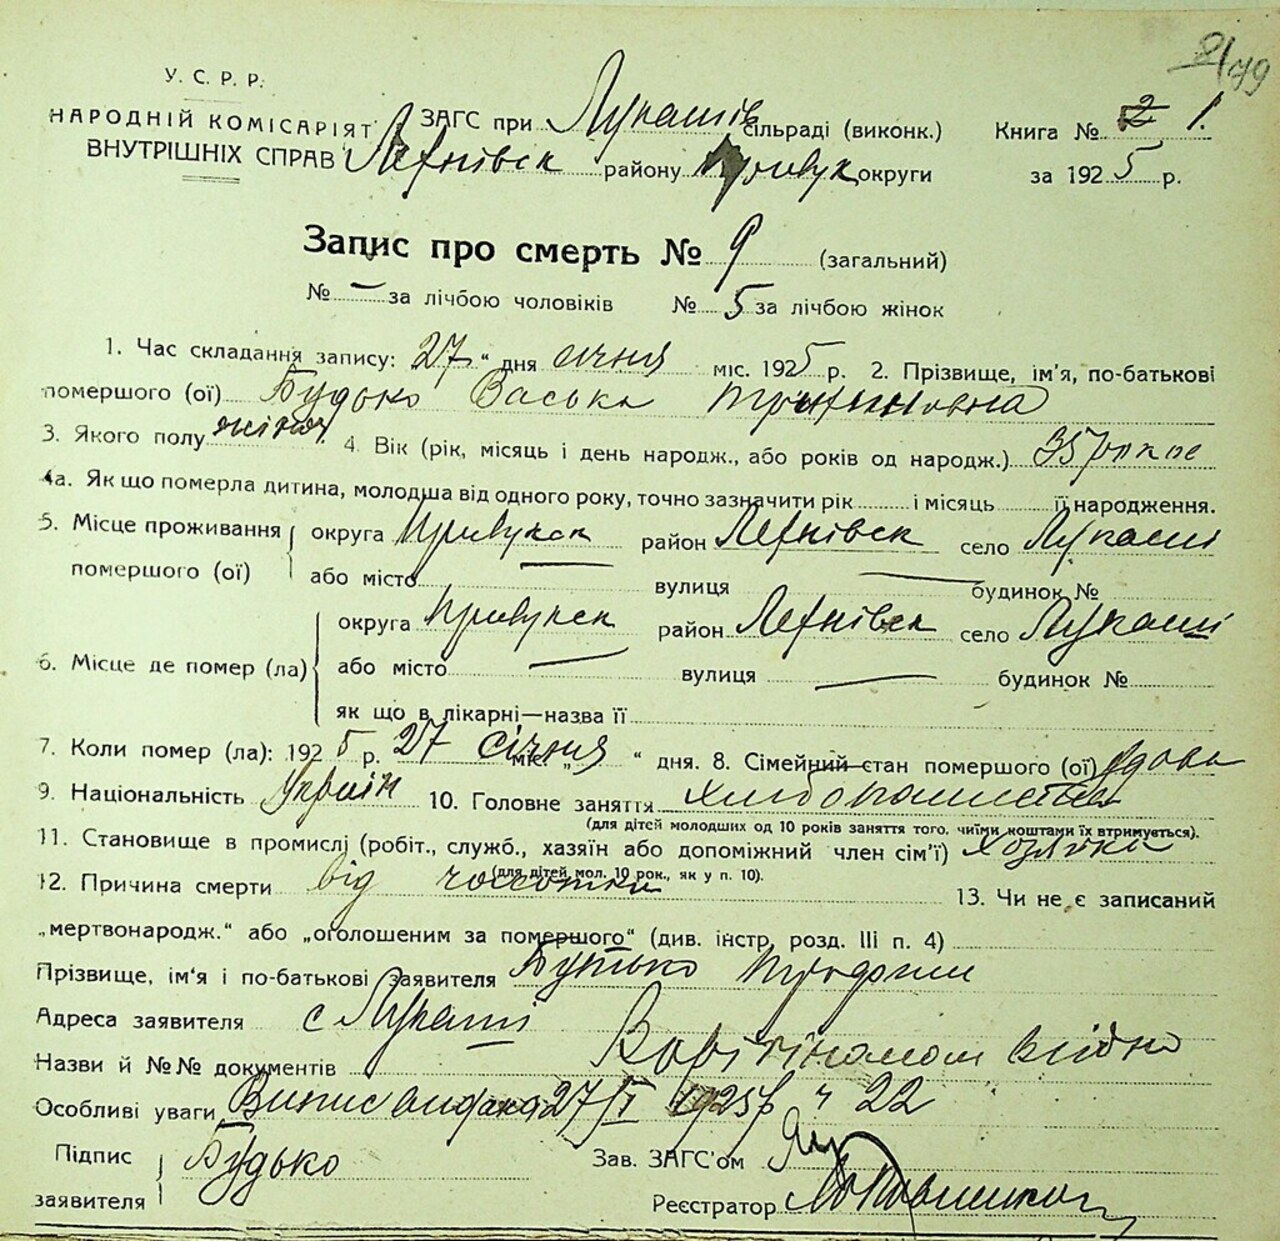 79
У. С. Р. Р.
НАРОДНІЙ КОМІСАРІЯТ ВНУТРІШНІХ СПРАВ
ЗАГС при Лукашів сільраді (виконк.) Книга № 2 1.
району округи за 1925 р.
Запис про смерть № 9 (загальний)
№ — за лічбою чоловіків № 5 за лічбою жінок
1. Час складання запису: 27 " дня січня міс. 1925 р. 2. Прізвище, ім'я, по-батькові
помершого (ої) Будько Васька
3. Якого полу жіноч 4. Вік (рік, місяць і день народж., або років од народж.) 35 рокое
4а. Як що померла дитина, молодша від одного року, точно зазначити рік і місяць її народження.
5. Місце проживання помершого (ої) округа Прилукск район село Лукаші
або місто — вулиця — будинок №
6. Місце де помер (ла) округа Прилукск район село Лукаші
або місто — вулиця — будинок №
як що в лікарні—назва її
7. Коли помер (ла): 1925 р. 27 січня міс. „ " дня. 8. Сімейний стан помершого (ої) удова
9. Національність Україн 10. Головне заняття
(для дітей молодших од 10 років заняття того, чиїми коштами їх втримується).
11. Становище в промислі (робіт., служб., хазяїн або допоміжний член сім'ї) Хозяйка
(для дітей мол. 10 рок., як у п. 10).
12. Причина смерти від 13. Чи не є записаний
„мертвонародж." або „оголошеним за помершого" (див. інстр. розд. III п. 4)
Прізвище, ім'я і по-батькові заявителя Будько Трофим
Адреса заявителя с Лукаші
Назви й №№ документів
Особливі уваги Випис видана 27/I 1925 р ч 22
Підпис заявителя Будько
Зав. ЗАГС'ом
Реєстратор